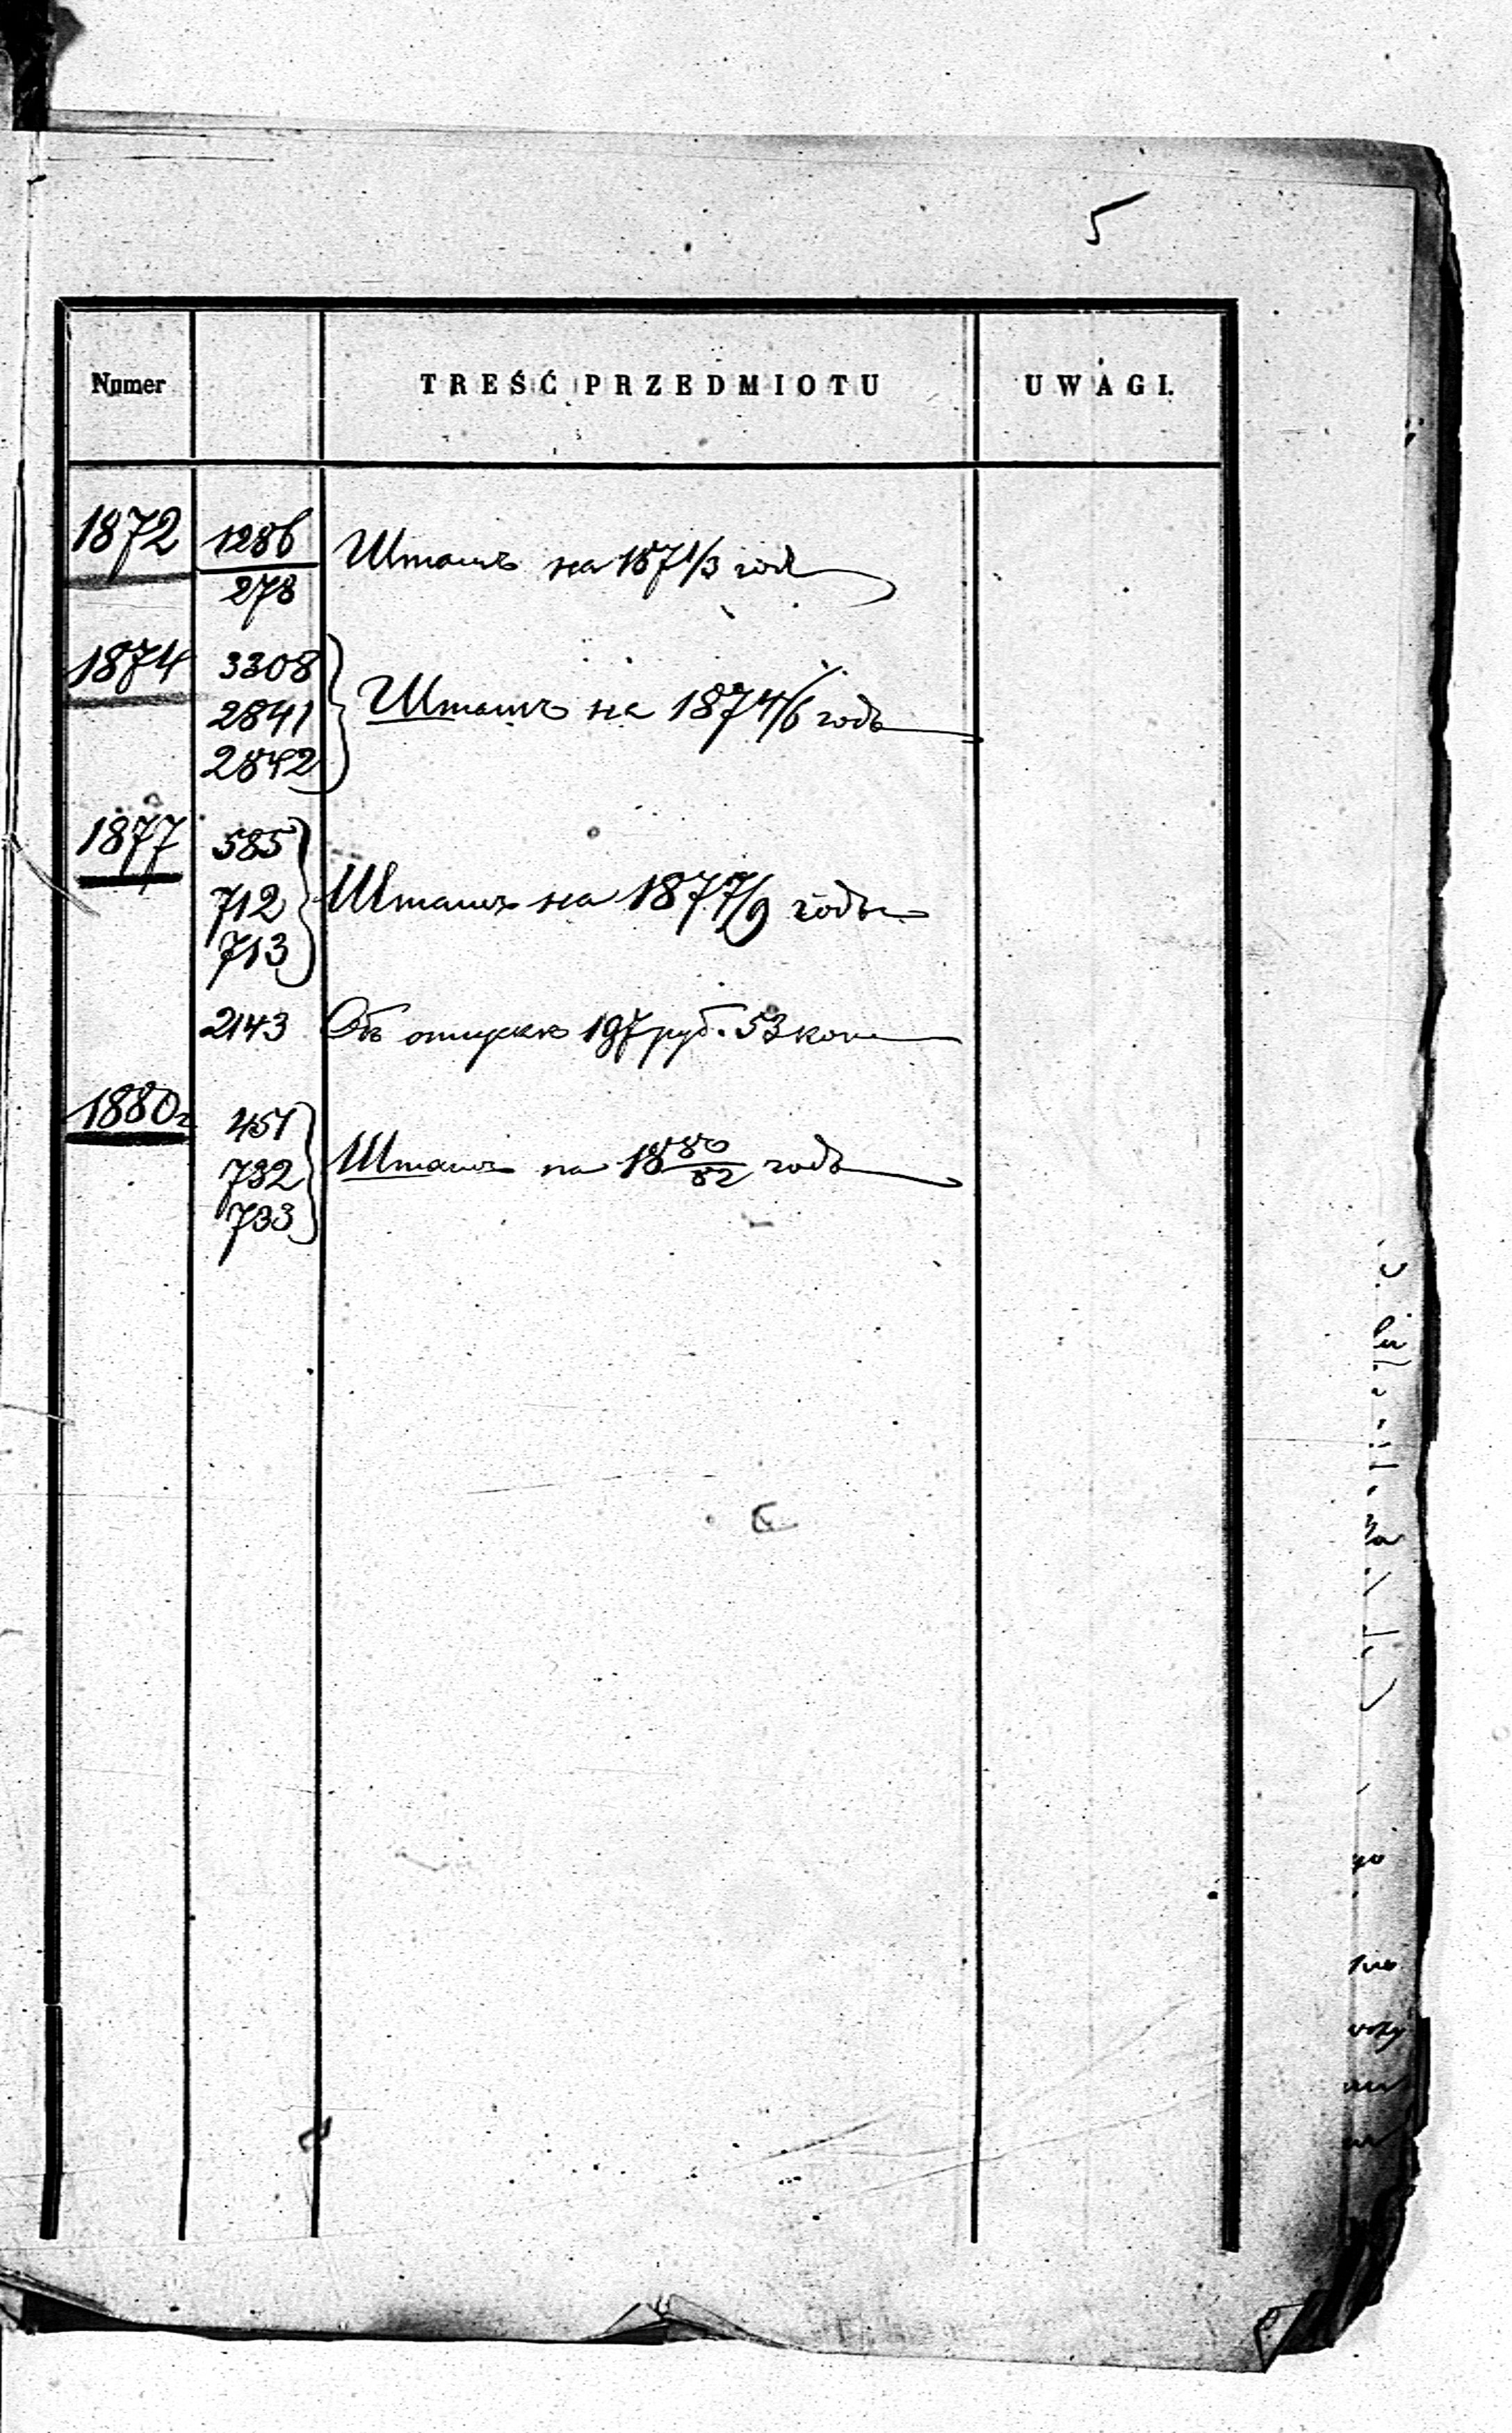 5
Numer TREŚĆ PRZEDMIOTU UWAGI.
1872 1286 Штатъ на 1871/3 годъ
278
1874 3308
2841 Штатъ на 1874/6 годъ
2842
1877 585
712 Штатъ на 1877/9 годъ
713
2143 Объ отпускѣ 197 руб. 53 коп
1880г 451
732 Штатъ на 1880/82 годъ
733